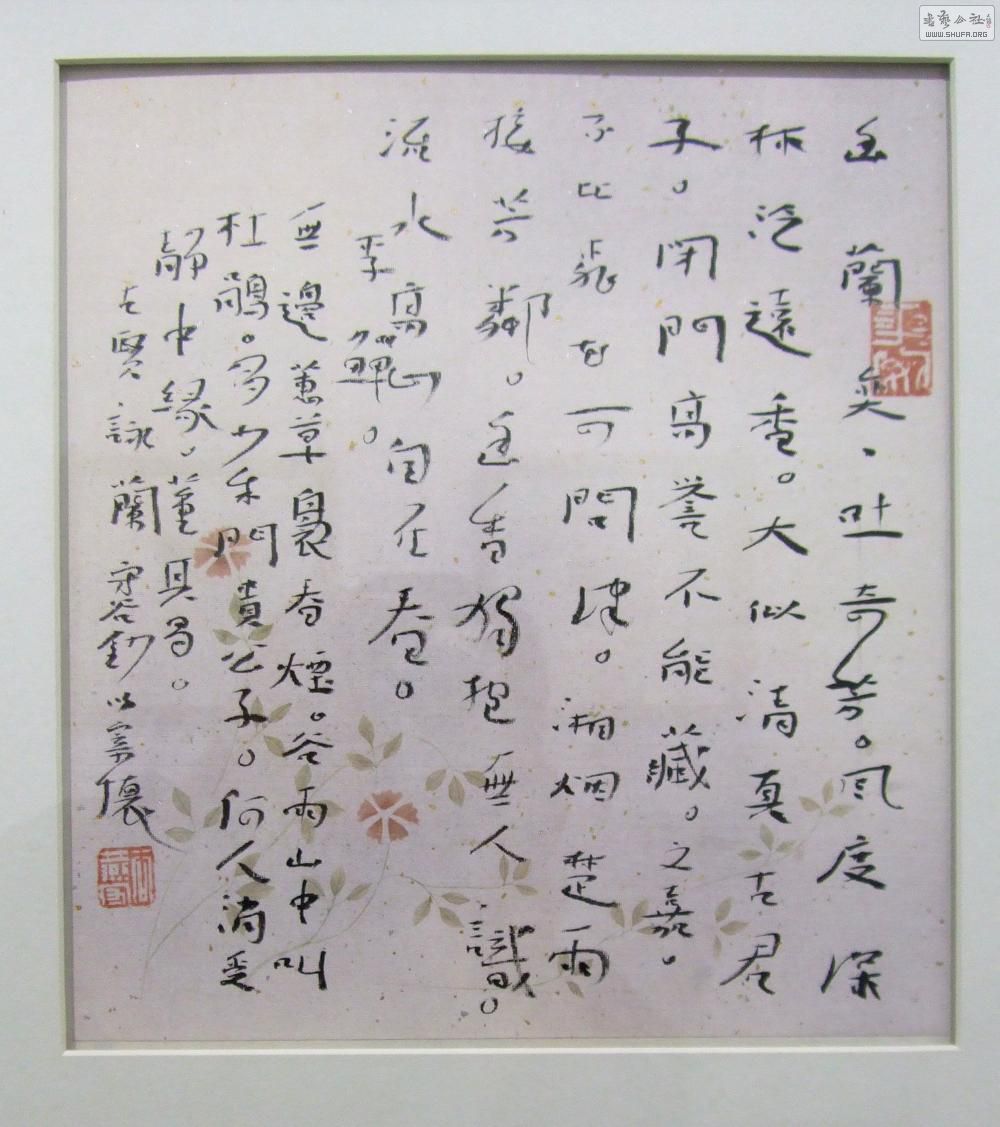 幽蘭奕、吐奇芳。风度深
林泛遠香。大似清真古君
子。閉門高譽不能藏。之嘉。
不比花可問津。湘烟楚雨
接芳鄰。幽香獨抱無人識。
流水高山自在春。
李鱓。
無邊蕙草裊春煙。谷雨山中叫
杜鵑。多少朱門貴公子。何人消受
靜中緣。董其昌。
古賢詠蘭 守谷釗以寄懷
書藝公社
WWW.SHUFA.ORG